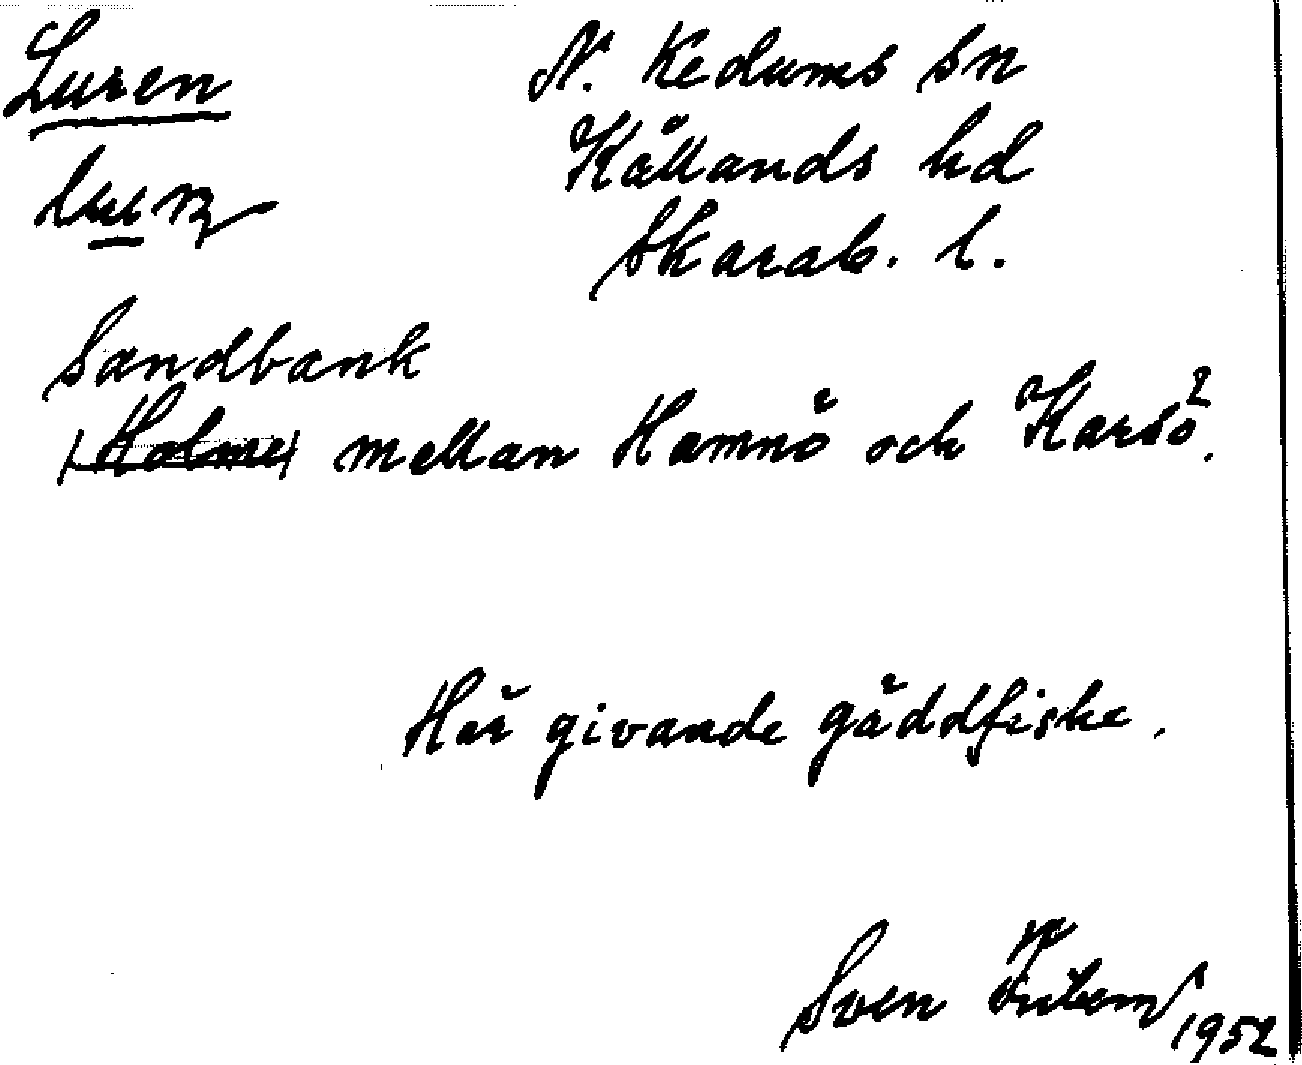 Luren
N. Kedums sn
Kållands hd
Skarab. l.
Sandbank
(Holme) mellan Hamnö och Karsö.
Här givande gäddfiske.
Sven
1952